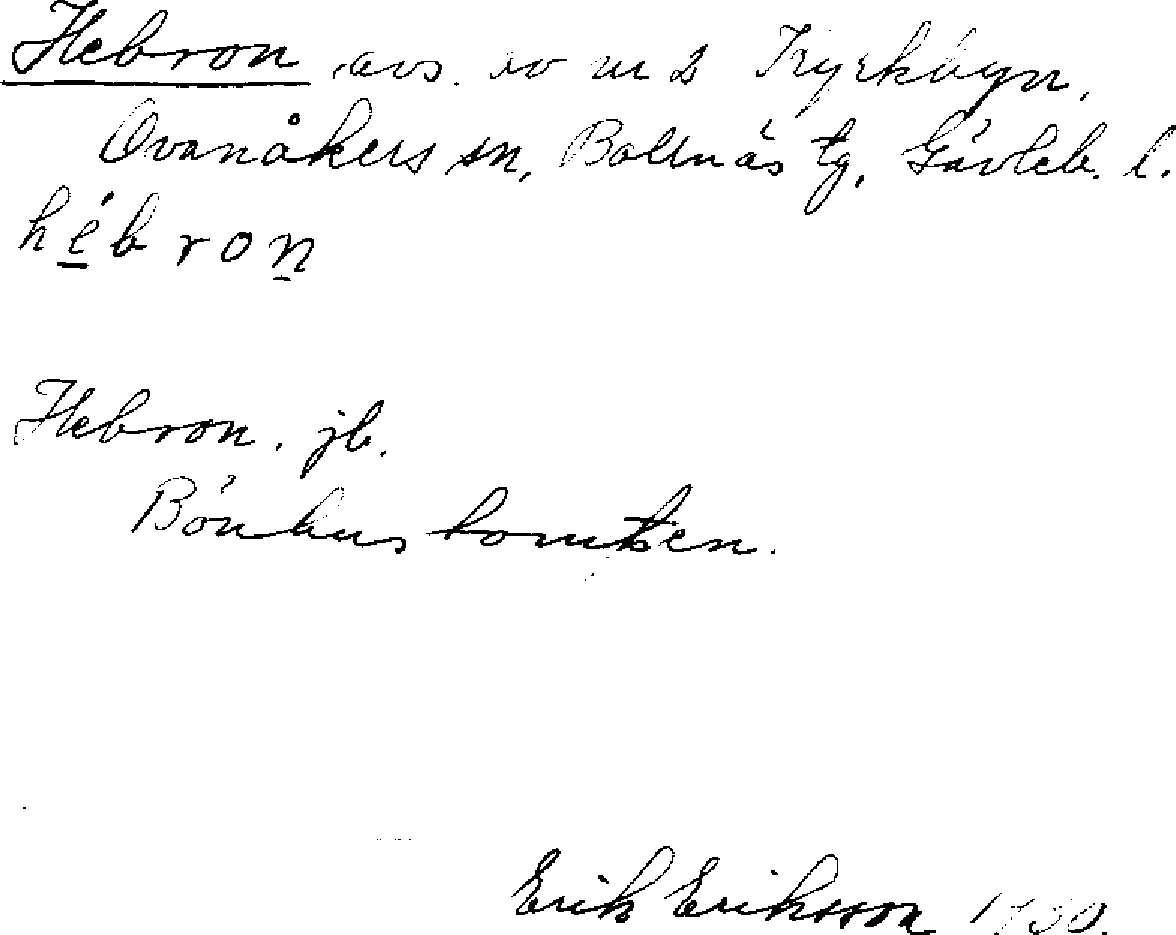 Hebron, avs. av nr 2 Kyrkbyn,
Ovanåkers sn, Bollnäs tg, Gävleb. l.
hébron
Hebron. jb.
Bönhustomten.
Erik Eriksson 1930.